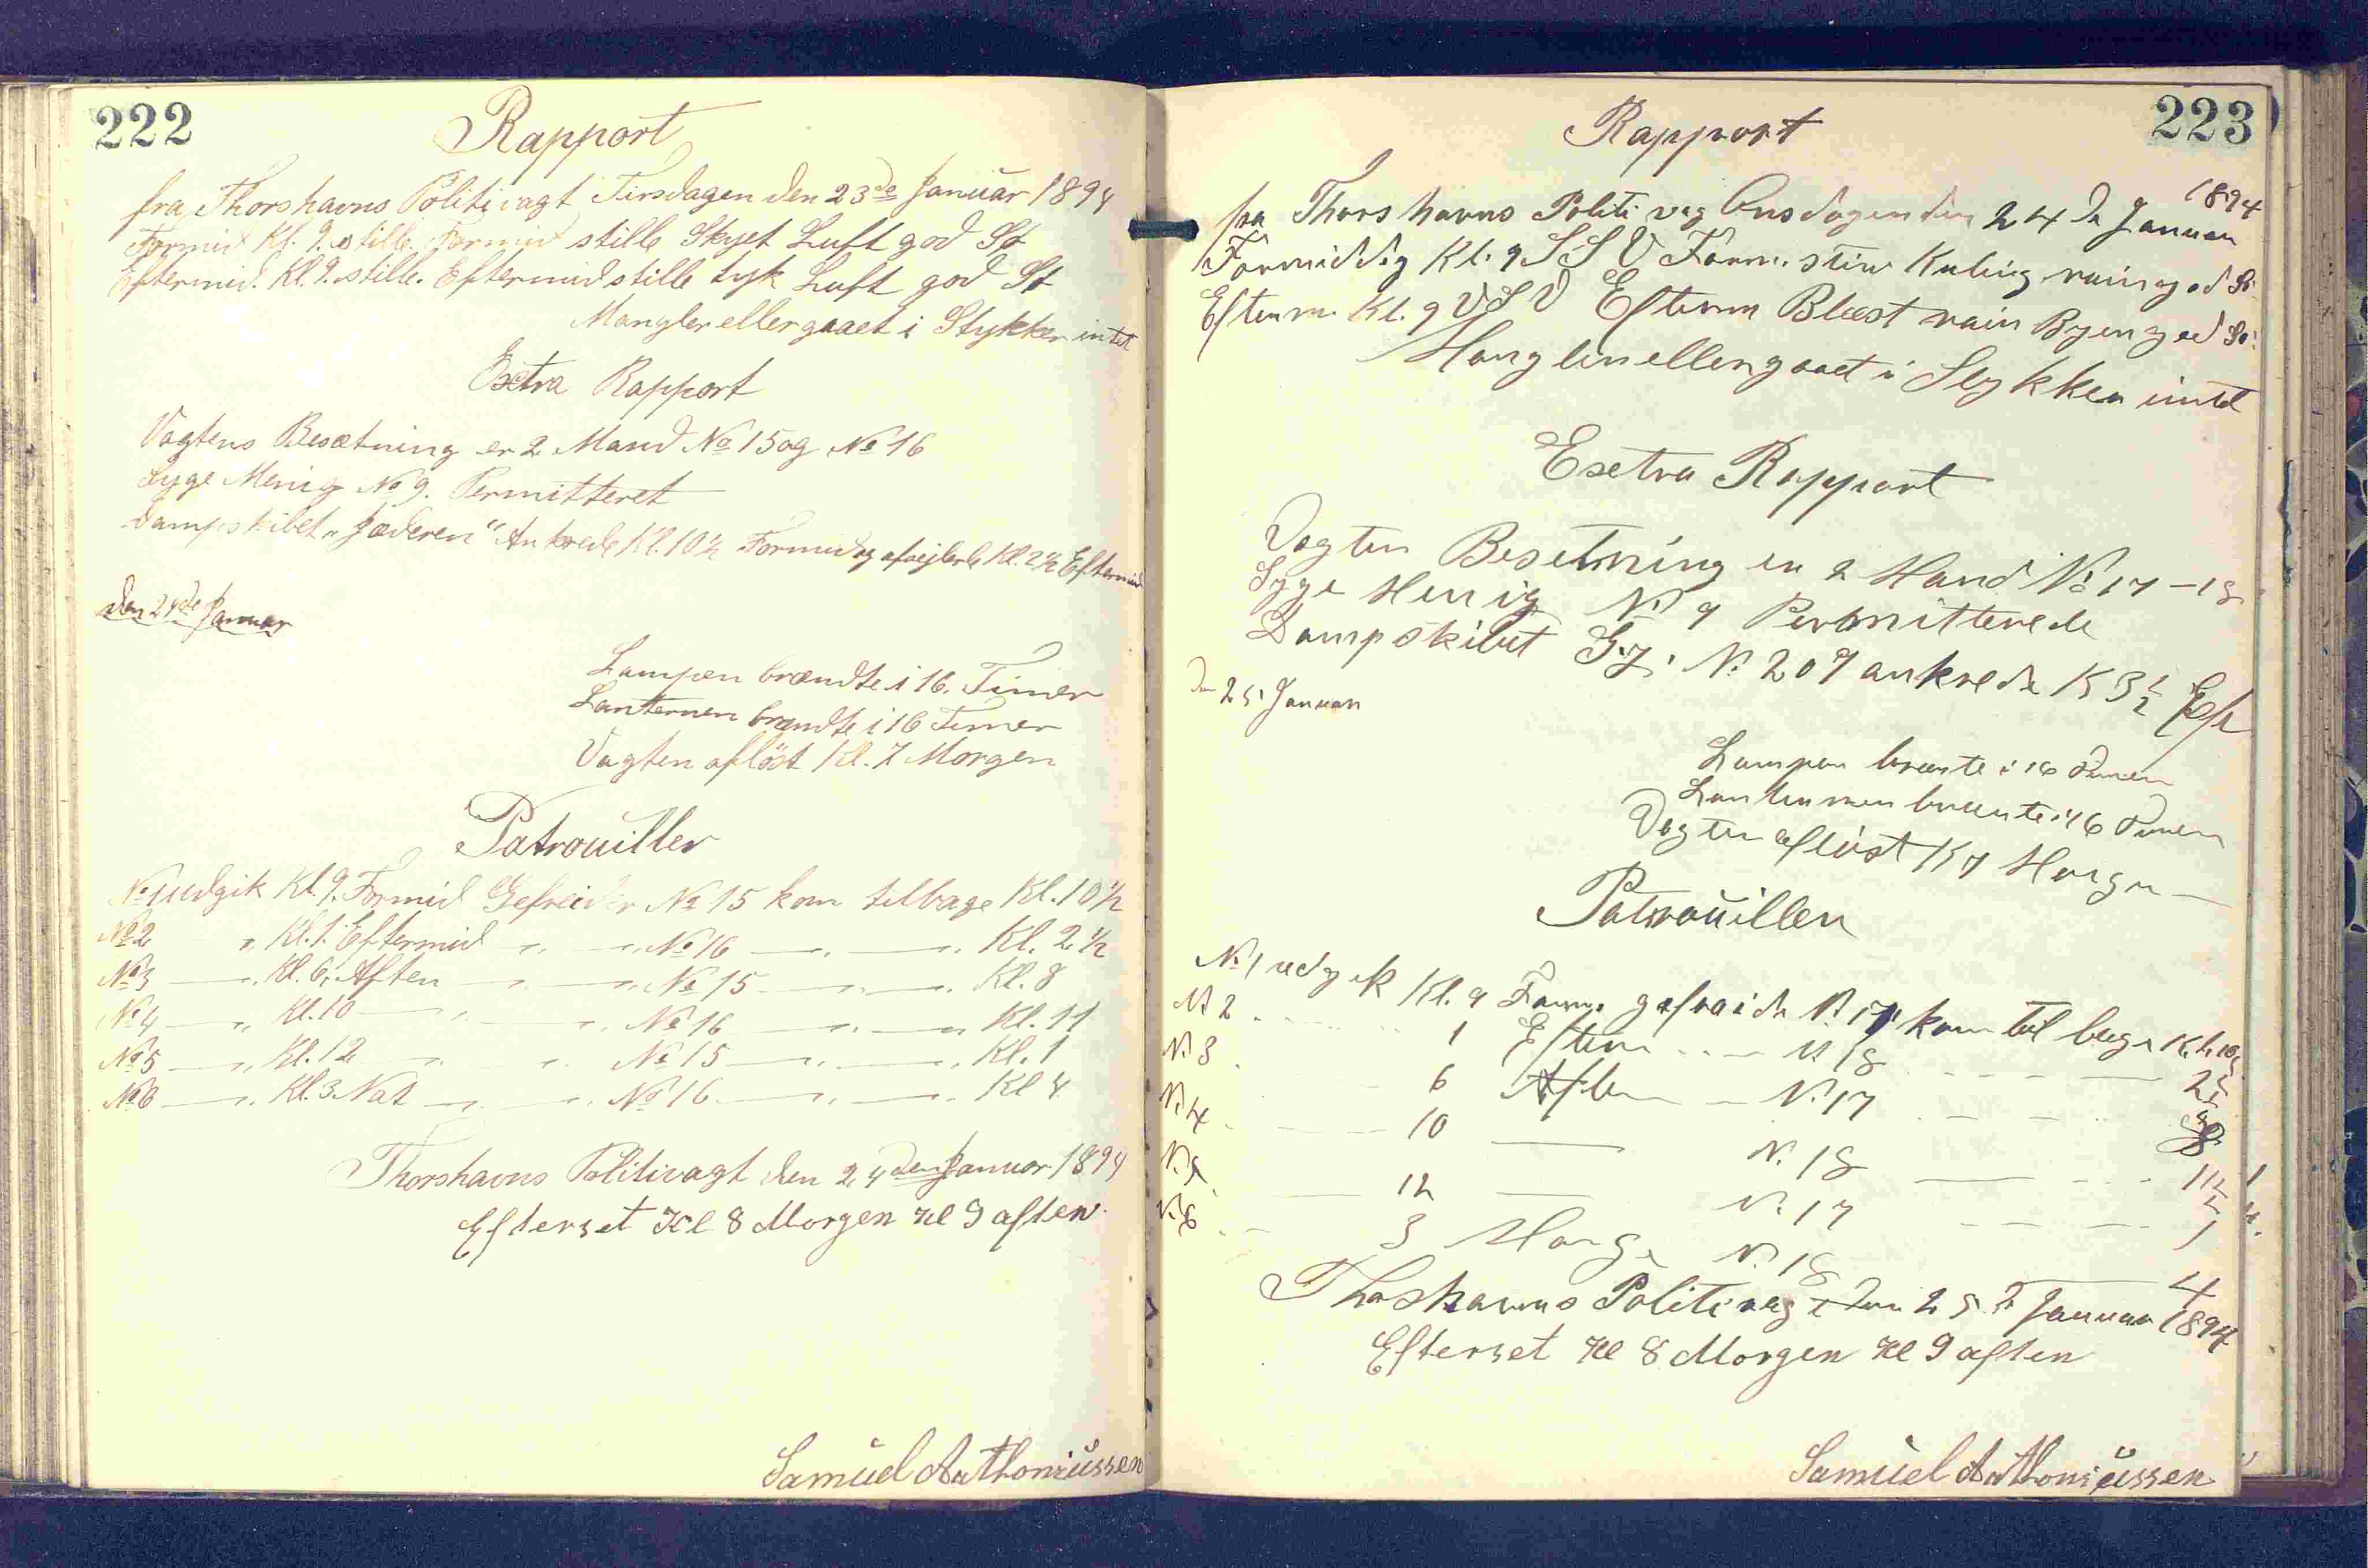 222
Rapport
fra Thorshavns Politivagt Tirsdagen den 23de Januar 1894
Formid Kl. 9. stille. Formid stille Skyet Luft god St
Eftermid. Kl. 9. stille. Eftermid stille tyk Luft god St
Mangler eller gaaet i Stykker intet
Exstra Rapport
Vagtens Besætning er 2 Mand No 15 og No 16
Syge Menig No 9. Permitteret
Dampskibet „Jæderen“ Ankrede Kl. 10½ Formidag afsejlede Kl. 2½ Eftermid
den 24de Januar
Lampen brændte i 16. Timer
Lanternen brændte i 16 Timer
Vagten aflöst Kl. 7 Morgen
Patrouiller
No 1 udgik Kl. 9. Formid Gefreider No 15 kom tilbage Kl. 10½
No 2 „ Kl. 1. Eftermid „ „ No 16 — „ — Kl. 2½
No 3 — „ Kl. 6, Aften „ „ No 15 — „ — Kl. 8
No 4 — „ Kl. 10 — „ „ No 16 — „ — Kl. 11
No 5 — „ Kl. 12 „ „ No 15 — „ — Kl. 1
No 6 — „ Kl. 3 Nat „ „ No 16 — „ — Kl 4
Thorshavns Politivagt den 24den Januar 1894
Efterset Kl 8 Morgen Kl 9 aften
Samuel Anthoniussen
223
Rapport
1894
fra Thorshavns Politi vag Onsdagen den 24 de Januar
Formiddig Kl. 9 SSV Form. stiw Kuling rain god St
Efterm. Kl. 9 VSV Efterm Blæst rain Byen god St
Mangler eller gaaet i Stykker intet
Exstra Rapport
Vagten Besetning er 2 Mand No 17 – 18
Syge Menig No 9 Permitterede
Dampskibet No 207 ankrede K 3½ Eft
Den 25. Januar
Lampen brænte i 16 Timer
Lanternen brænte i 16 Timer
Vagten afløst K 7 Morgen
Patrouiller
No 1 udgik Kl. 9 Form. gefraide No 17 kom tel bage Kl. 10½
No 2 1 Efterm No 18 2½
No 3 6 Aften No 17 8
No 4 10 — No 18 — 11½
No 5 12 — No 17 1
No 6 3 Morge No 18 — 4
Thoshavns Politivagt den 25 de Januar 1894
Efterset Kl 8 Morgen Kl 9 aften
Samuel Anthoniussen